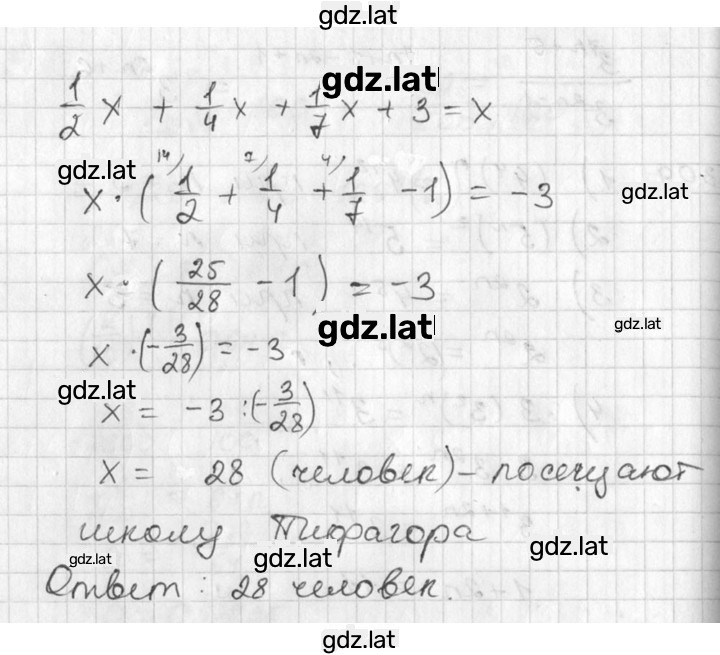 gdz.lat
gdz.lat
1/2 x + 1/4 x + 1/7 x + 3 = x
gdz.lat
14) 7) 4)
x · (1/2 + 1/4 + 1/7 - 1) = -3
gdz.lat
x · (25/28 - 1) = -3
gdz.lat
gdz.lat
x · (-3/28) = -3
gdz.lat
x = -3 : (-3/28)
x = 28 (человек) - посещают
школу Пифагора
gdz.lat
gdz.lat
gdz.lat
Ответ: 28 человек.
gdz.lat